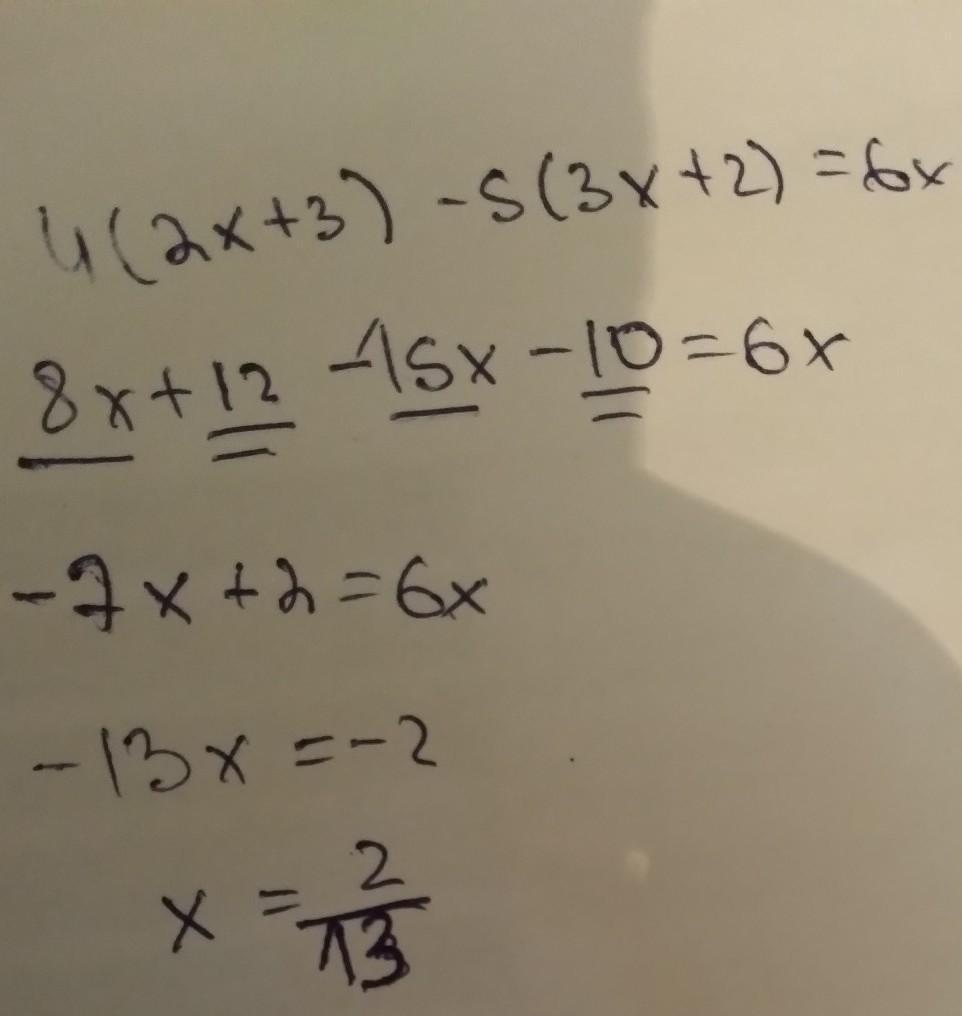 4(2x+3) -5(3x+2) = 6x
8x + 12 -15x - 10 = 6x
-7x + 2 = 6x
-13x = -2
x = 2/13